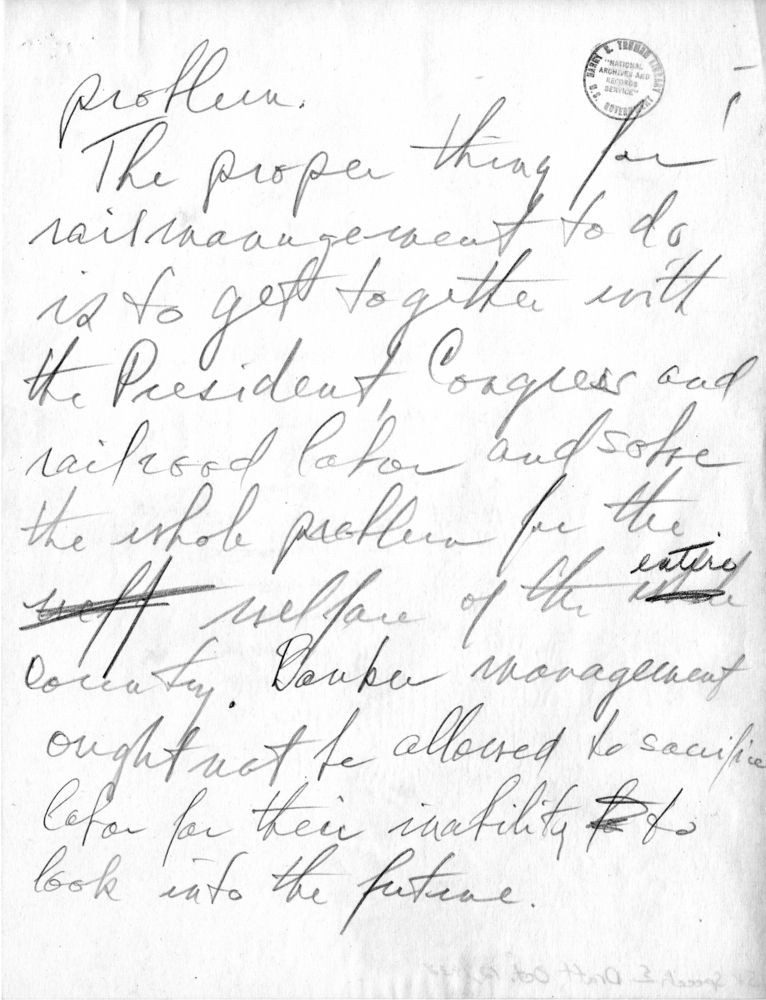 HARRY S. TRUMAN LIBRARY
"NATIONAL
ARCHIVES AND
RECORDS
SERVICE"
U.S. GOVERNMENT
problem.
The proper thing for
rail management to do
is to get together with
the President, Congress and
railroad labor and solve
the whole problem for the
entire
welfare of the
country. Banker management
ought not be allowed to sacrifice
labor for their inability to
look into the future.